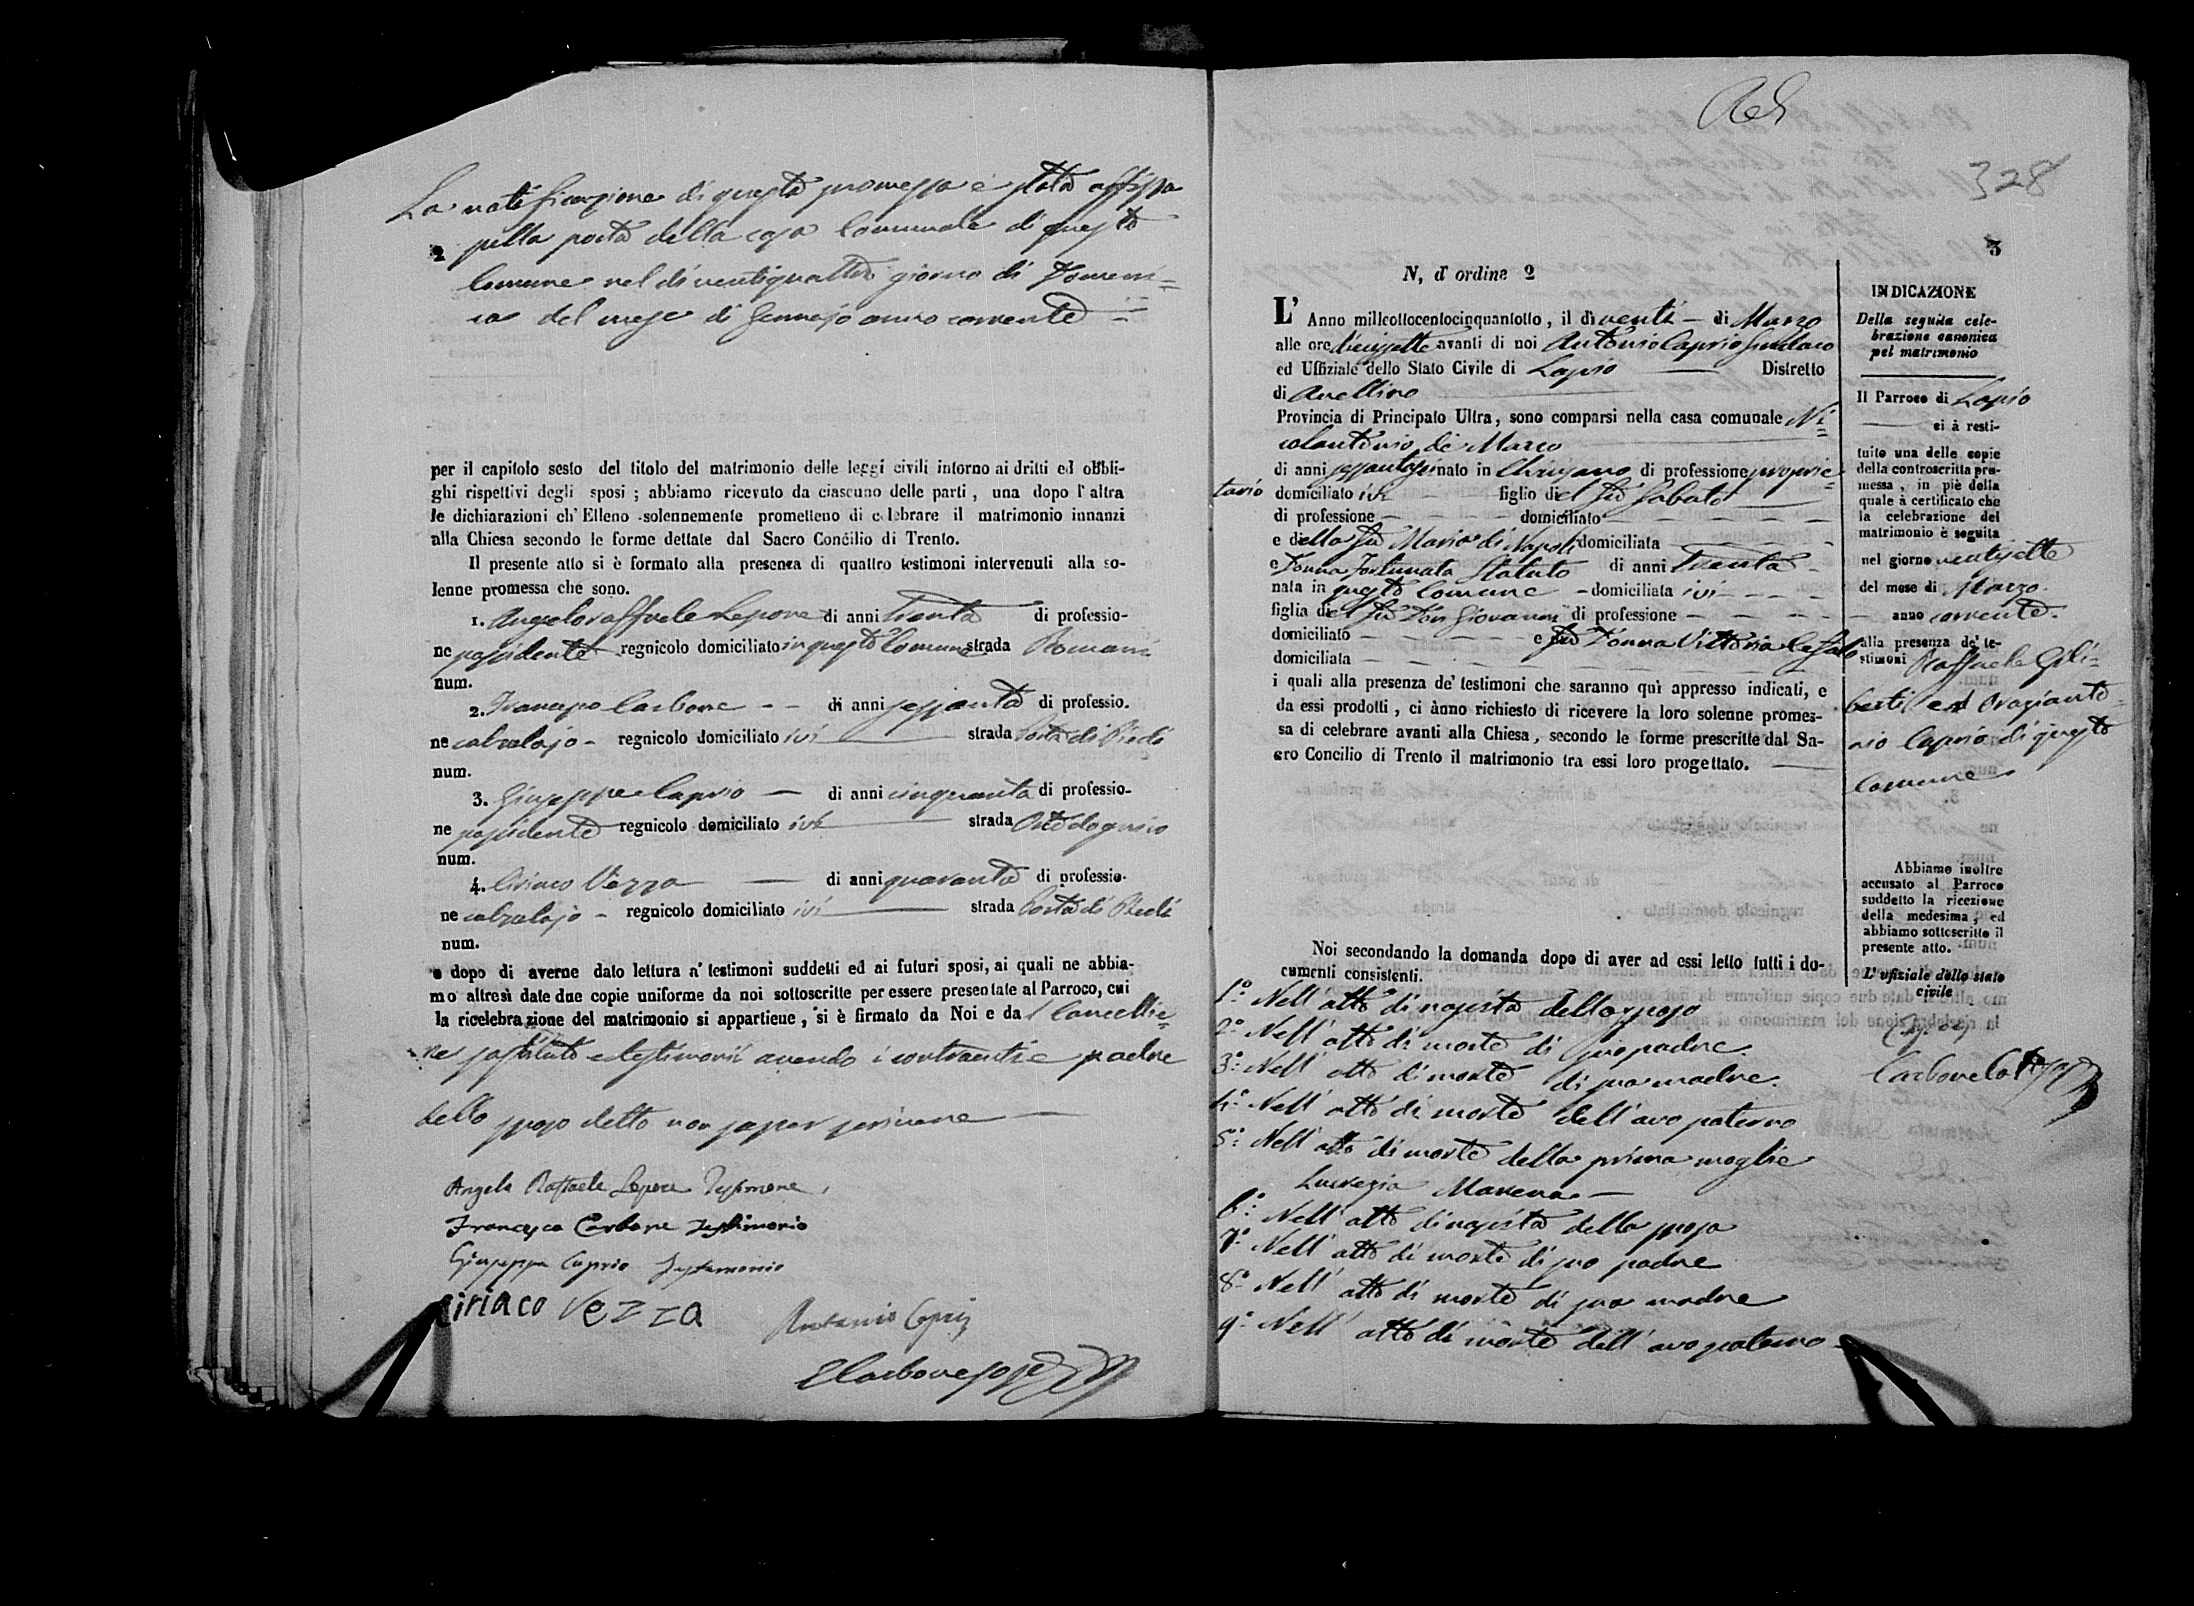 La notificazione di questa promessa è stata affissa
2
sulla porta della casa Comunale di questo
Comune nel dì ventiquattro giorno di Domeni=
ca del mese di Gennajo anno corrente =
per il capitolo sesto del titolo del matrimonio delle leggi civili intorno ai dritti ed obbli-
ghi rispettivi degli sposi ; abbiamo ricevuto da ciascuno delle parti , una dopo l'altra
le dichiarazioni ch' Elleno solennemente promettono di celebrare il matrimonio innanzi
alla Chiesa secondo le forme dettate dal Sacro Concilio di Trento.
Il presente atto si è formato alla presenza di quattro testimoni intervenuti alla so-
lenne promessa che sono.
1. Angeloraffaele Lepore di anni trenta di professio-
ne possidente regnicolo domiciliato in questo Comune strada Romani
num.
2. Francesco Carbone - - di anni sessanta di professio.
ne calzolajo - regnicolo domiciliato ivi strada Porta di Piedi
num.
3. Giuseppe Caprio — di anni cinquanta di professio-
ne possidente regnicolo domiciliato ivi strada
num.
4. Ciriaco Vezza — di anni quaranta di professio-
ne calzolajo - regnicolo domiciliato ivi strada Porta di Piedi
num.
e dopo di averne dato lettura a' testimoni suddetti ed ai futuri sposi, ai quali ne abbia-
mo altresì date due copie uniforme da noi sottoscritte per essere presentate al Parroco, cui
la ricelebrazione del matrimonio si appartiene , si è firmato da Noi e dal Cancellie=
re sostituto e testimonii avendo i contraenti e padre
dello sposo detto non saper scrivere —
Angelo Raffaele Lepore Testimone
Francesco Carbone Testimonio
Giuseppe Caprio Testimonio
Ciriaco Vezza
Antonio Caprio
Carbone
328
3
N. d' ordine 2
L' Anno millottocentocinquantotto , il dì venti — di Marzo
alle ore diecisette avanti di noi Antonio Caprio Sindaco
ed Uffiziale dello Stato Civile di Lapio — Distretto
di Avellino
Provincia di Principato Ultra, sono comparsi nella casa comunale Ni=
colantonio de Marco
di anni sessantasei nato in Chiusano di professione proprie=
tario domiciliato ivi - figlio del fu Sabato
di professione - - - domiciliato - - - -
e della fu Maria di Napoli domiciliata - - -
e Donna Fortunata Statuto di anni Trenta -
nata in questo Comune - domiciliata ivi - - -
figlia del fu Don Giovanni di professione - - - -
domiciliato - - - - e fu Donna Vittoria
domiciliata - - - - - - - - -
i quali alla presenza de' testimoni che saranno quì appresso indicati, e
da essi prodotti , ci ànno richiesto di ricevere la loro solenne promes-
sa di celebrare avanti alla Chiesa , secondo le forme prescritte dal Sa-
cro Concilio di Trento il matrimonio tra essi loro progettato. —
Noi secondando la domanda dopo di aver ad essi letto tutti i do-
cumenti consistenti.
1° Nell' atto di nascita dello sposo
2° Nell' atto di morte di suo padre
3° Nell' atto di morte di sua madre
4° Nell' atto di morte dell' avo paterno
5° Nell' atto di morte della prima moglie
Lucrezia —
6° Nell' atto di nascita della sposa
7° Nell' atto di morte di suo padre
8° Nell' atto di morte di sua madre
9° Nell' atto di morte dell' avo paterno
INDICAZIONE
Della seguita cele-
brazione canonica
pel matrimonio
Il Parroco di Lapio
— ci à resti-
tuito una delle copie
della controscritta pro-
messa , in piè della
quale à certificato che
la celebrazione del
matrimonio è seguita
nel giorno ventisette
del mese di Marzo
anno corrente.
alla presenza de' te-
stimoni Raffaele Gili=
berti ed Oraziantо=
nio Caprio di questo
Comune
Abbiamo inoltre
accusato al Parroco
suddetto la ricezione
della medesima , ed
abbiamo sottoscritto il
presente atto.
L' ufiziale dello stato
civile
Carbone